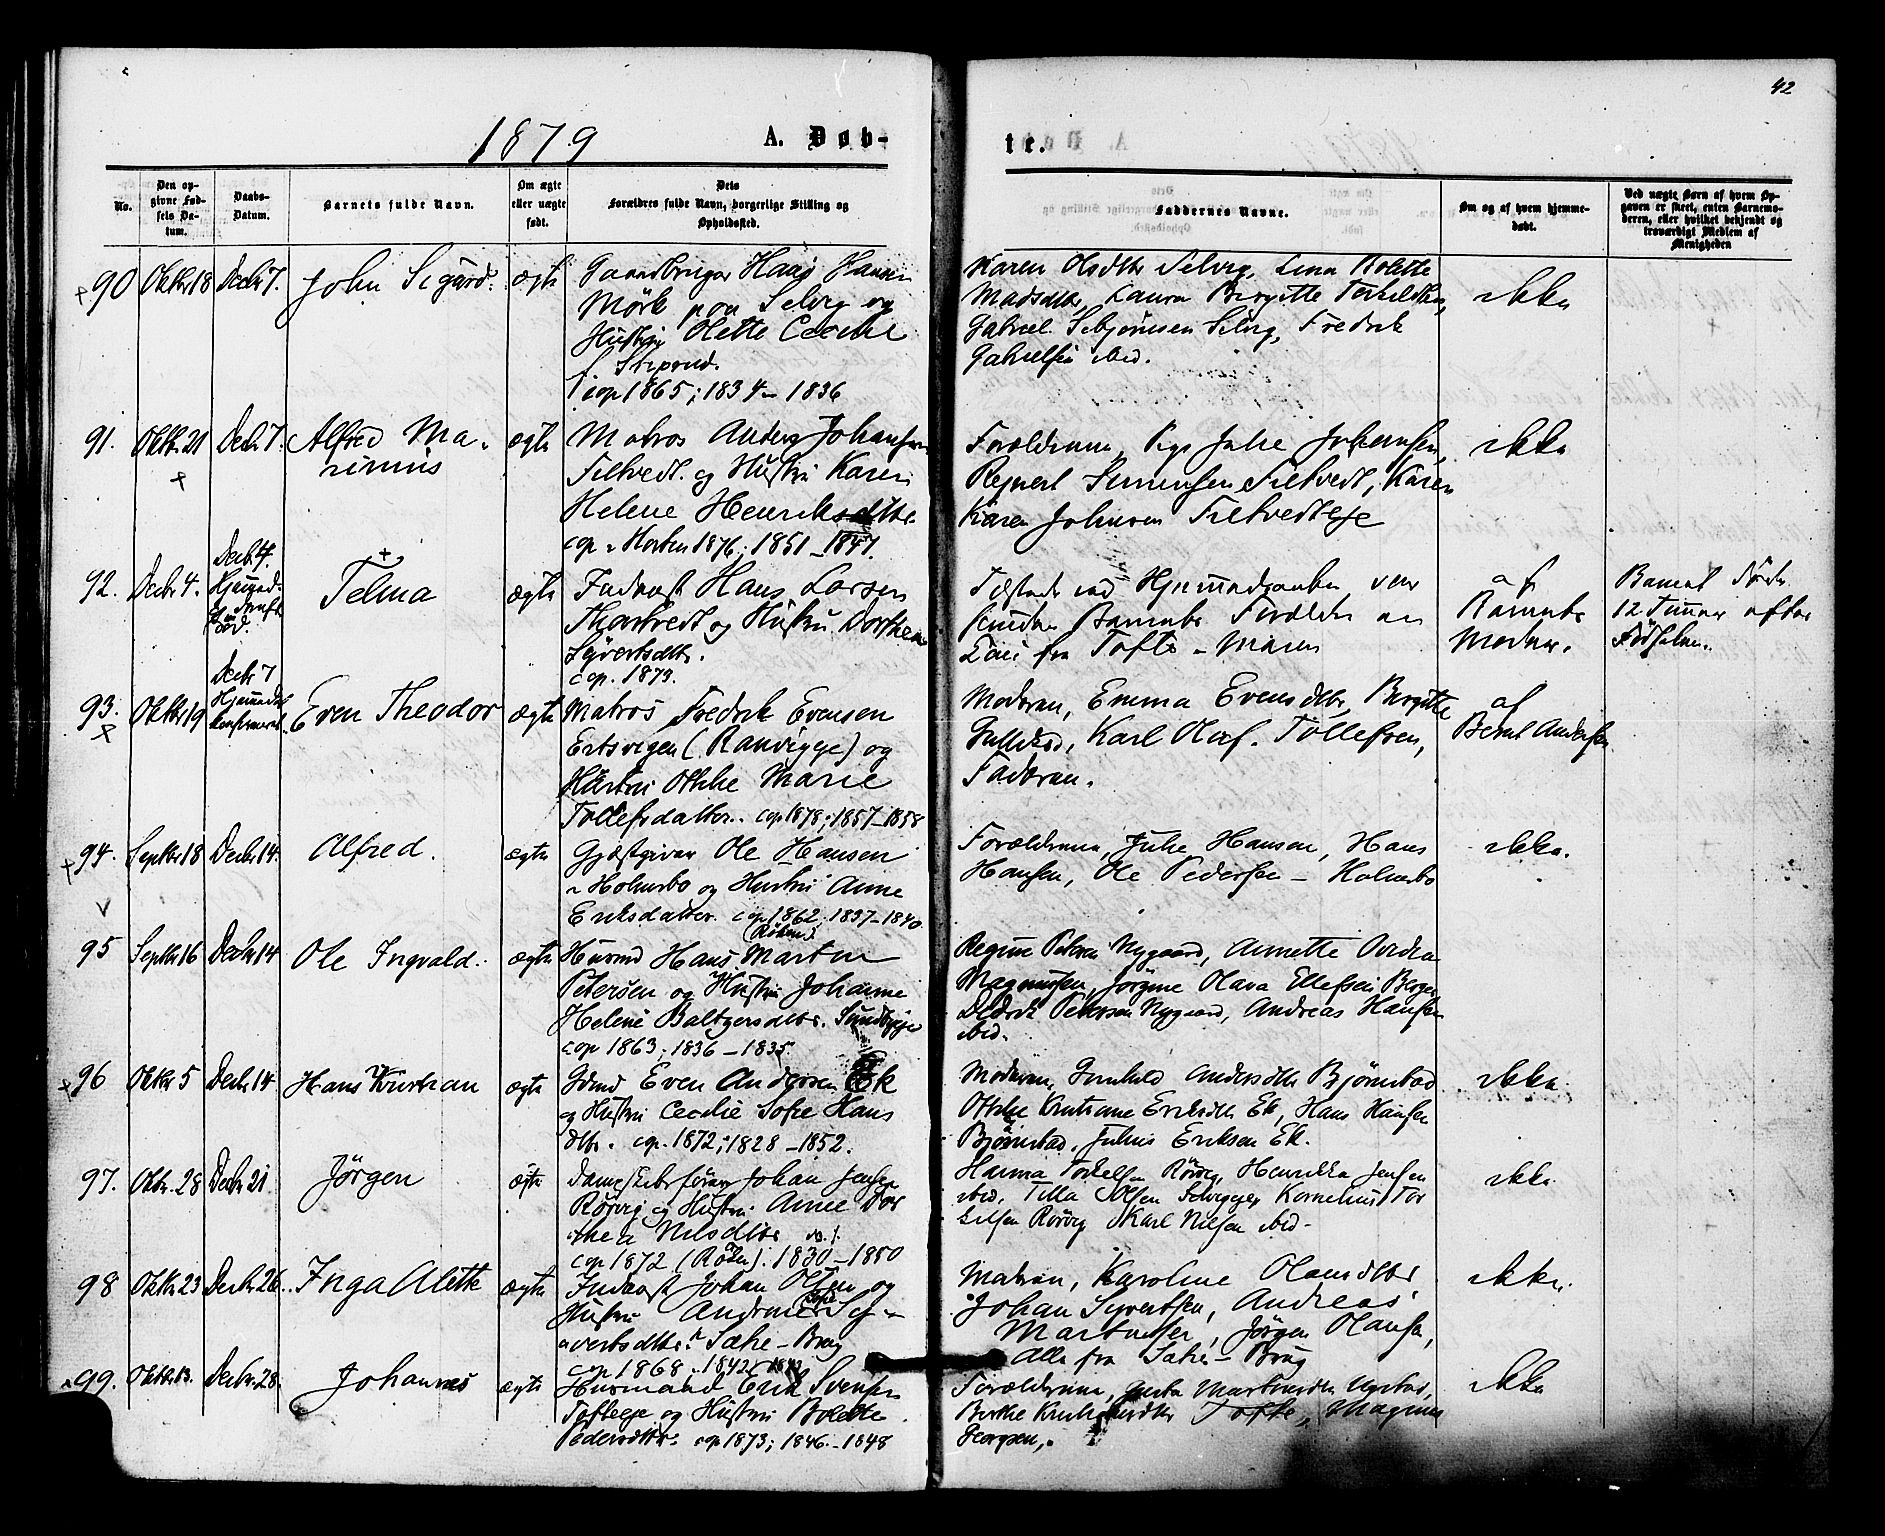 42
1879 A. Døb-
te.
No.
Den op-
givne Fød-
sels Da-
tum.
Daabs-
Datum.
Barnets fulde Navn.
Om ægte
eller uægte
født.
Dets
Forældres fulde Navn, borgerlige Stilling og
Opholdssted.
Faddernes Navne.
Om og af hvem hjemme-
døbt.
Ved uægte Børn af hvem Op-
gaven er skeet, enten Barnemo-
deren, eller hvilket bekjendt og
troværdigt Medlem af
Menigheden
90 Oktbr 18 Decbr 7. John Sigurd. ægte
Hans Hansen
Mørk paa Selvig og
Hustru Olette Cecilie
cop 1865; 1834 - 1836
Karen Olsdtr Selvig, Lina Bolette
Madsdtr, Laura Birgitte
Gabriel Selvig, Fredrik
Gabrielsen ibid.
ikke
91. Oktbr 21 Decbr 7. Alfred Ma-
rinius
ægte
Matros Anders Johansen
Tiltvedt og Hustru Karen
Helene Henriksdtr.
cop i Horten 1876; 1851 - 1847.
Forældrene, Pige Julie Johansen,
Reynert Tiltvedt, Karen
Karen Johnsen Tiltvedteje
ikke
92. Decbr 4.
Decbr 4.
Hjemmed.
død.
Telma
ægte
Inderst Hans Larsen
Tiltvedt og Hustru Dorthea
Syvertsdtr.
cop. 1873.
Tilstede ved Hjemmedaaben var
Barnets Forældre
fra Tofte - Maren
af
Barnets
Moder.
Barnet døde
12 Timer efter
Fødselen.
93. Oktbr 19
Decbr 7
Hjemmedøbt
Even Theodor ægte
Matros Fredrik Evensen
Ertsvigen (Ranvigeje) og
Hustru Othilie Marie
Tollefsdatter. cop 1878; 1857 - 1858
Moderen, Emma Evensdtr, Birgitte
Karl Oluf Tollefsen,
Faderen.
af
Bernt Andersen
94. Septbr 18 Decbr 14. Alfred. ægte
Gjæstgiver Ole Hansen
i Holmsbo og Hustru Anne
Eriksdatter. cop 1862; 1837 - 1840
Forældrene, Julie Hansen, Hans
Hansen, Ole Pedersen - Holmsbo
ikke.
95 Septbr 16 Decbr 14 Ole Ingvald. ægte
(Røken)
Husmd Hans Martin
Petersen og Hustru Johanne
Helene Baltzersdtr. Sundbyeje
cop 1863; 1836 - 1835.
Regine Petersen Nygaard, Annette
Magnussen, Jørgine Olava Ellefsen Berger
Didrik Petersen Nygaard, Andreas Hansen
ibid.
96 Oktbr 5 Decbr 14 Hans Kristian ægte
Gdmd Even Andersen Ek
og Hustru Cecilie Sofie Hans
dtr. cop. 1872; 1828 - 1852.
Moderen, Gunhild Andersdtr Bjørnstad
Othilie Kristiane Eriksdtr Ek, Hans Hansen
Bjørnstad, Julius Eriksen Ek.
ikke.
97. Oktbr. 28 Decbr 21 Jørgen ægte
Dampskibsfører Johan Jensen
Rørvig og Hustru Anne Dor
thea Nilsdtr
cop 1872 (Røken). 1830 - 1850
Hanna Torkelsen Rørvig, Henrikke Jensen
ibid, Tilla Olsen Selvigeje, Kornelius Tor
Rørvig Karl Nilsen ibid.
ikke.
98 Oktbr 23 Decbr 26. Inga Alette ægte
Inderst Johan Olsen og
Hustru Andrine Sofie Sy-
vertsdtr. Sætre-Brug
cop 1868. 1842 - 1842
Moderen, Karoline Olausdtr
Johan Syvertsen, Andreas
Martinsen, Jørgen Olausen,
Alle fra Sætre-Brug
ikke.
99. Oktbr 13. Decbr 28. Johannes ægte
Husmand Erik Svensen
Tofteeje og Hustru Bolette
Pedersdtr. cop 1873; 1846 - 1848
Forældrene, Martinsdtr
Berthe Tofte, Magnus
Georgsen.
ikke